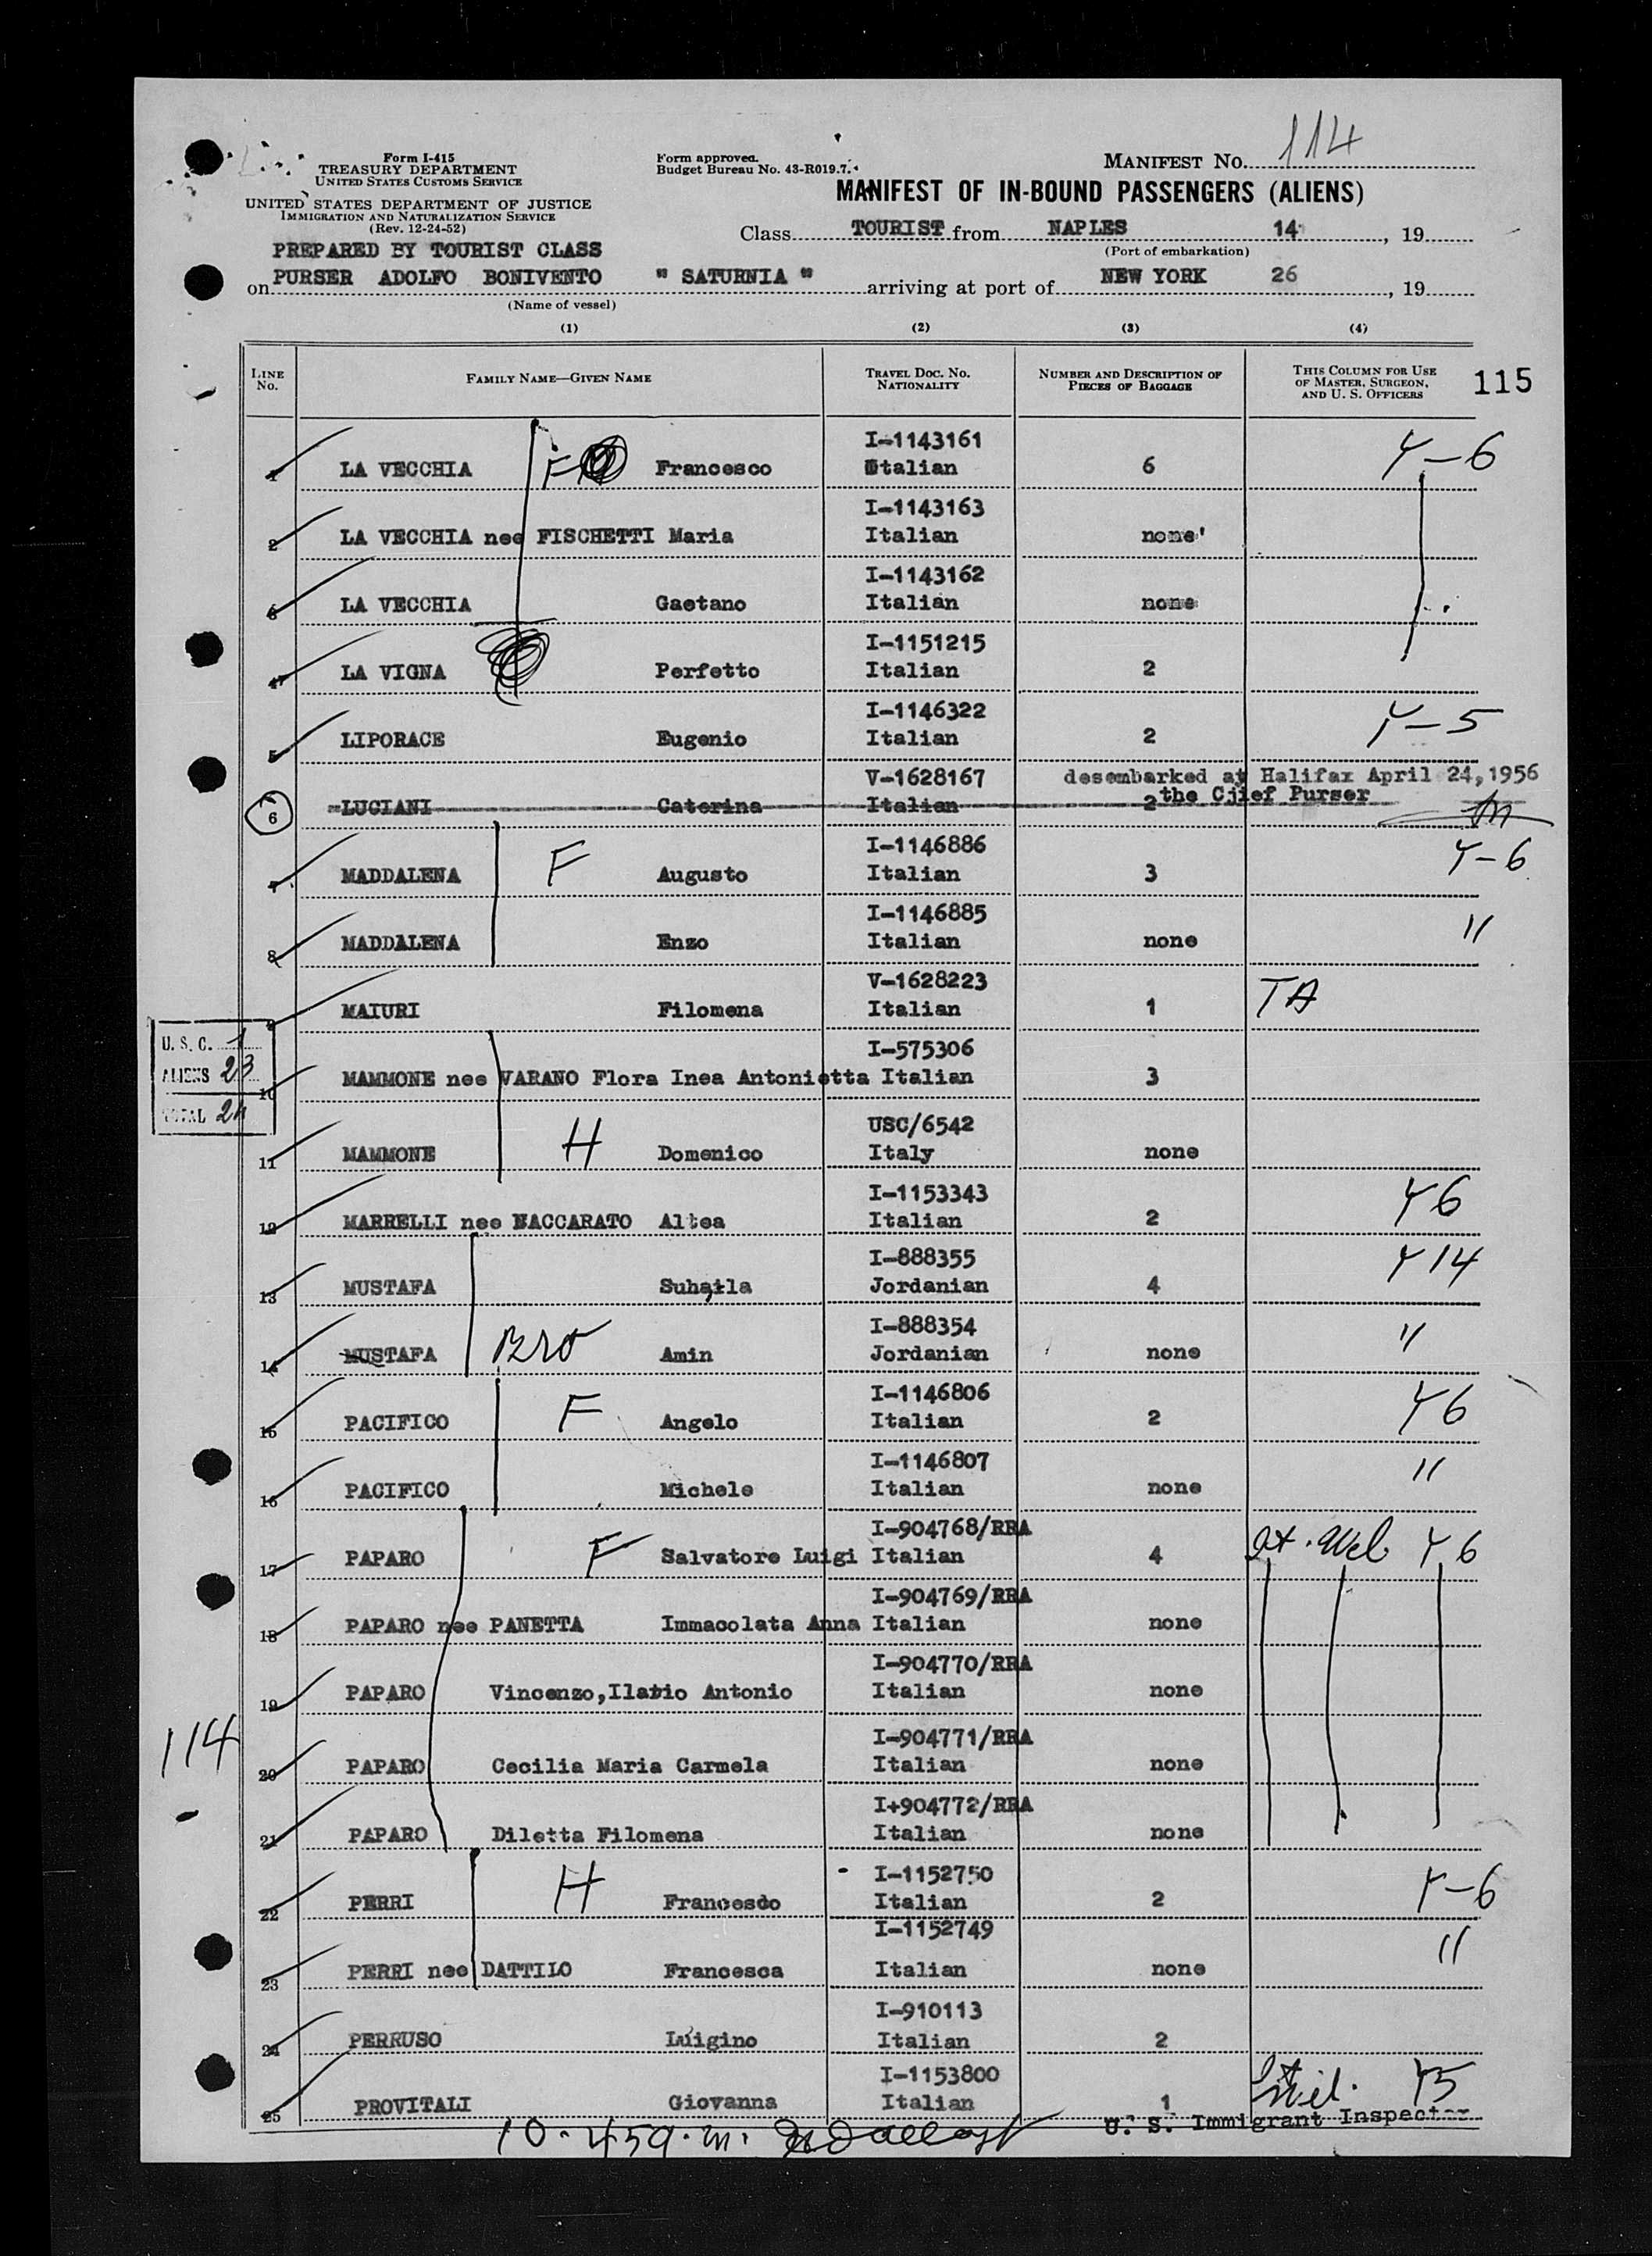 Form I-415
TREASURY DEPARTMENT
UNITED STATES CUSTOMS SERVICE
UNITED STATES DEPARTMENT OF JUSTICE
IMMIGRATION AND NATURALIZATION SERVICE
(Rev. 12-24-52)
Form approved.
Budget Bureau No. 43-R019.7.
MANIFEST NO. 114
MANIFEST OF IN-BOUND PASSENGERS (ALIENS)
Class TOURIST from NAPLES 14, 19
(Port of embarkation)
PREPARED BY TOURIST CLASS
on PURSER ADOLFO BONIVENTO " SATURNIA " arriving at port of NEW YORK 26, 19
(Name of vessel)
(1) (2) (3) (4)
LINE NO. FAMILY NAME—GIVEN NAME TRAVEL DOC. NO. NATIONALITY NUMBER AND DESCRIPTION OF PIECES OF BAGGAGE THIS COLUMN FOR USE OF MASTER, SURGEON, AND U. S. OFFICERS 115
I-1143161
1 LA VECCHIA F Francesco Italian 6 Y-6
I-1143163
2 LA VECCHIA nee FISCHETTI Maria Italian none'
I-1143162
3 LA VECCHIA Gaetano Italian none
I-1151215
4 LA VIGNA Perfetto Italian 2
I-1146322
5 LIPORACE Eugenio Italian 2 Y-5
V-1628167 desembarked at Halifax April 24,1956
6 LUCIANI Caterina Italian 2 the Cjief Purser
I-1146886
7 MADDALENA F Augusto Italian 3 Y-6
I-1146885
8 MADDALENA Enzo Italian none "
V-1628223
9 MAIURI Filomena Italian 1 TA
U. S. C. 1
ALIENS 23
TOTAL 24
I-575306
10 MAMMONE nee VARANO Flora Inea Antonietta Italian 3
USC/6542
11 MAMMONE H Domenico Italy none
I-1153343
12 MARRELLI nee NACCARATO Altea Italian 2 Y6
I-888355
13 MUSTAFA Suhaila Jordanian 4 Y14
I-888354
14 MUSTAFA Bro Amin Jordanian none "
I-1146806
15 PACIFICO F Angelo Italian 2 Y6
I-1146807
16 PACIFICO Michele Italian none "
I-904768/RRA
17 PAPARO F Salvatore Luigi Italian 4 Y 6
I-904769/RRA
18 PAPARO nee PANETTA Immacolata Anna Italian none
I-904770/RRA
19 PAPARO Vincenzo,Ilario Antonio Italian none
114
I-904771/RRA
20 PAPARO Cecilia Maria Carmela Italian none
I+904772/RRA
21 PAPARO Diletta Filomena Italian none
I-1152750
22 PERRI H Francesco Italian 2 Y-6
I-1152749
23 PERRI nee DATTILO Francesca Italian none "
I-910113
24 PERRUSO Luigino Italian 2
I-1153800
25 PROVITALI Giovanna Italian 1 Y5
U. S. Immigrant Inspector